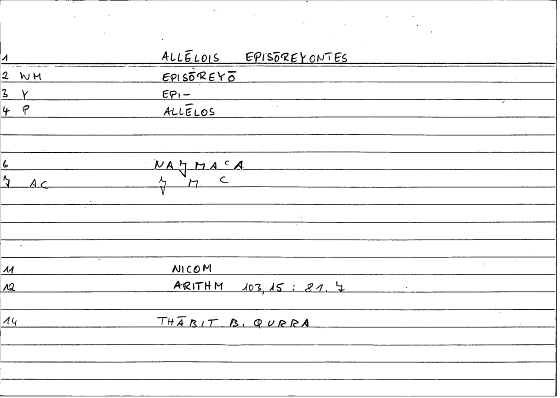 1 ALLĒLOIS EPISŌREYONTES
2 WM EPISŌREYŌ
3 Y EPI-
4 P ALLĒLOS
6 NAʒMAᶜA
ʒ AC ʒ M C
11 NICOM
12 ARITHM 103,15 : 81.
14 THĀBIT B. QURRA